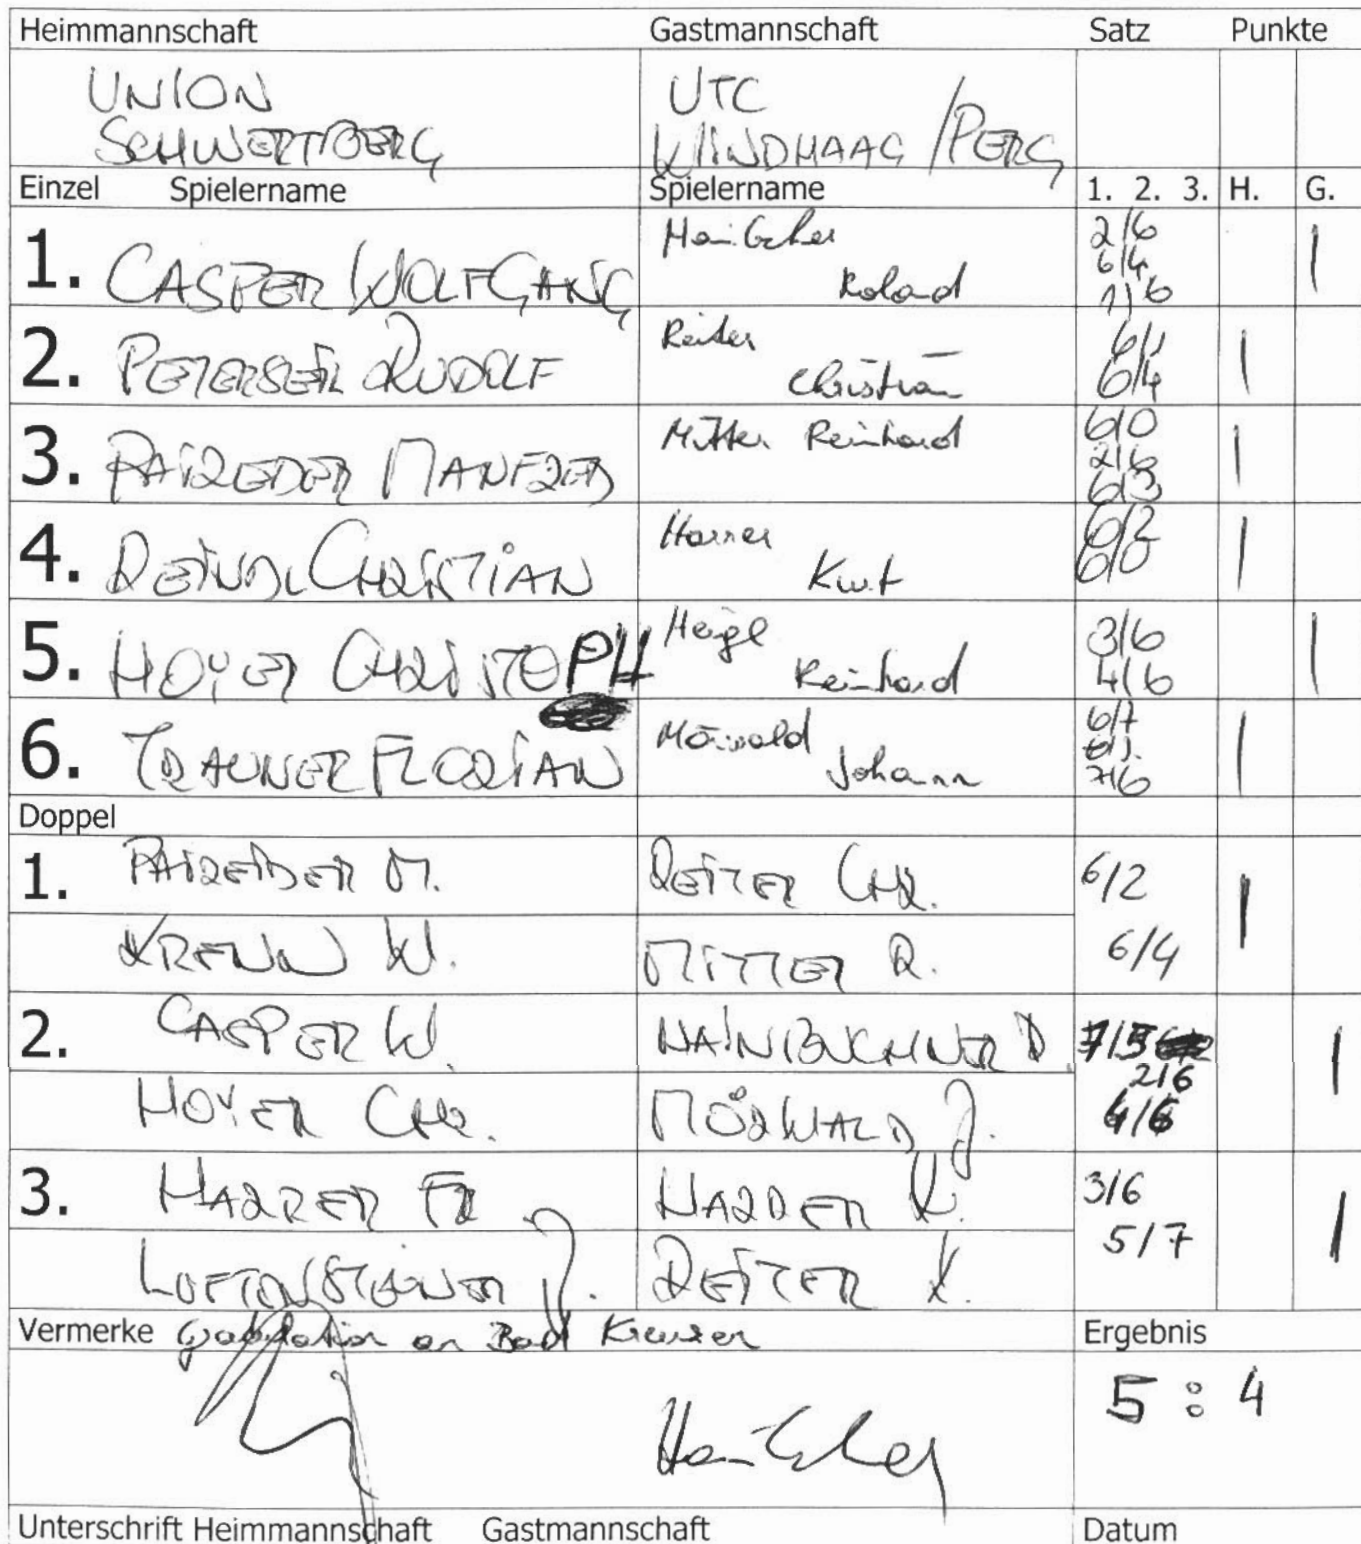 Heimmannschaft Gastmannschaft Satz Punkte
UNION UTC
SCHWERTBERG WINDHAAG /PERG
Einzel Spielername Spielername 1. 2. 3. H. G.
1. CASPER WOLFGANG Roland 2/6 6/4 1/6 |
2. PETERSEIL RUDOLF Reiter Christian 6/1 6/4 |
3. PAIREDER MANFRED Mitter Reinhard 6/0 2/6 6/3 |
4. REINDL CHRISTIAN Harrer Kurt 6/2 6/0 |
5. HOYER CHRISTOPH Heigl Reinhard 3/6 4/6 |
6. TRAUNER FLORIAN Mörwald Johann 6/7 7/6 |
Doppel
1. PAIREDER M. REITER CHR. 6/2 |
KRENN W. MITTER R. 6/4
2. CASPER W. HAINBUCHNER 7/5 |
2/6
HOYER CHR. MÖRWALD J. 4/6
3. HARRER FR. HARRER K. 3/6 |
5/7
LUFTENSTEINER J. REITER K.
Vermerke Gratulation an Bad Kreuzen Ergebnis
5 : 4
Unterschrift Heimmannschaft Gastmannschaft Datum